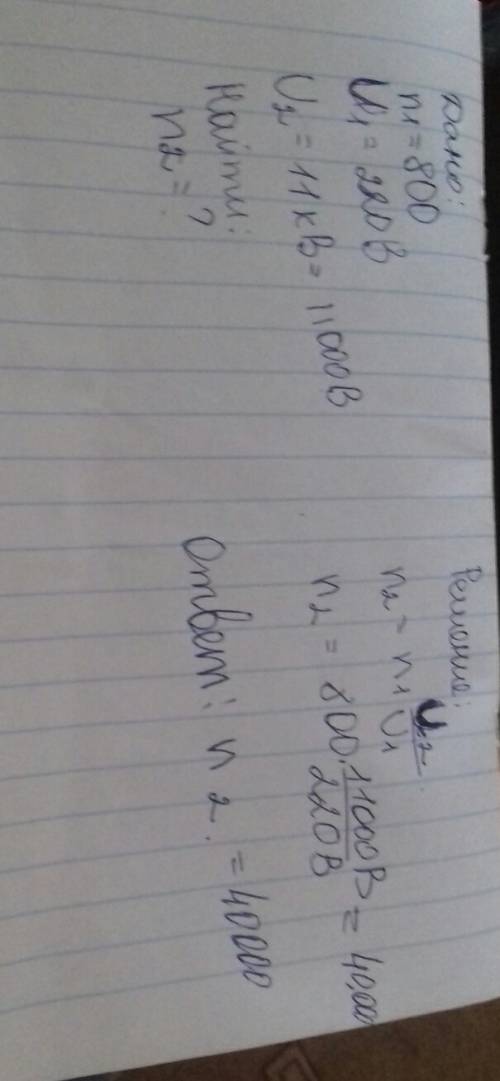 Дано:
n₁ = 800
U₁ = 220 В
U₂ = 11 кВ = 11000 В
Найти:
n₂ = ?
Решение:
n₂ = n₁ U₂/U₁
n₂ = 800 · 11000 В/220 В = 40,000
Ответ: n₂. = 40000